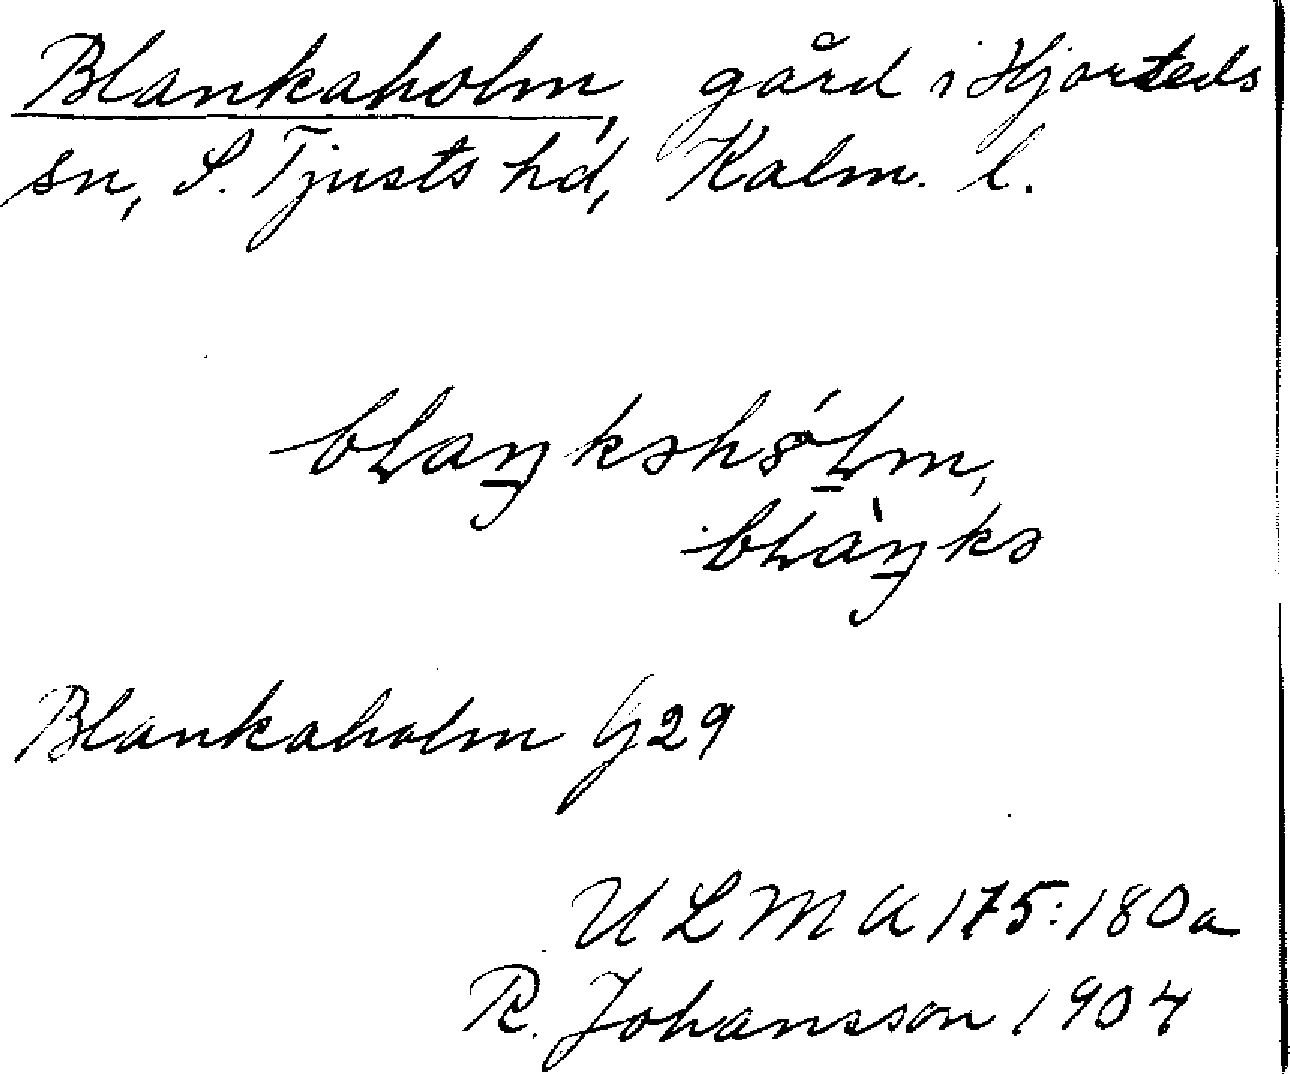 Blankaholm, gård i Hjorteds
sn, S. Tjusts hd, Kalm. l.
bɫaŋkəhó̤ɫm,
bɫàŋkə
Blankaholm G29
ULMA 175:180a
R. Johansson 1904